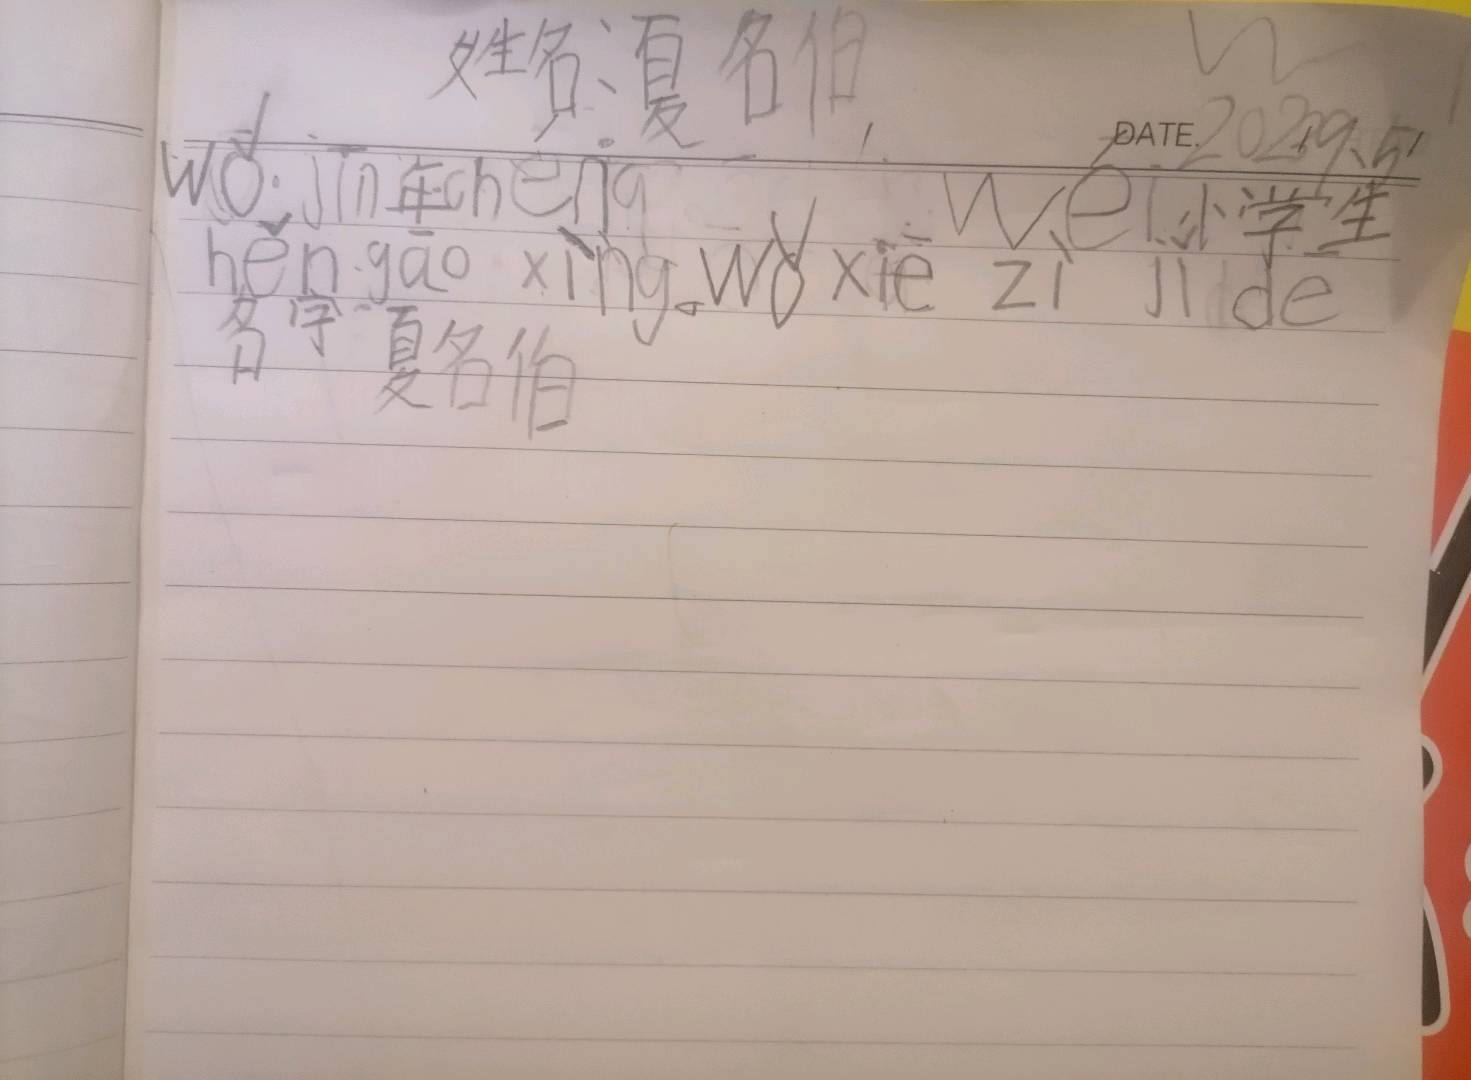 姓名:夏名伯
DATE. 2021.9.5
wǒ jīn年chéng wéi 小学生
hěn gāo xìng。wǒ xiě zì jǐ de
名字 夏名伯